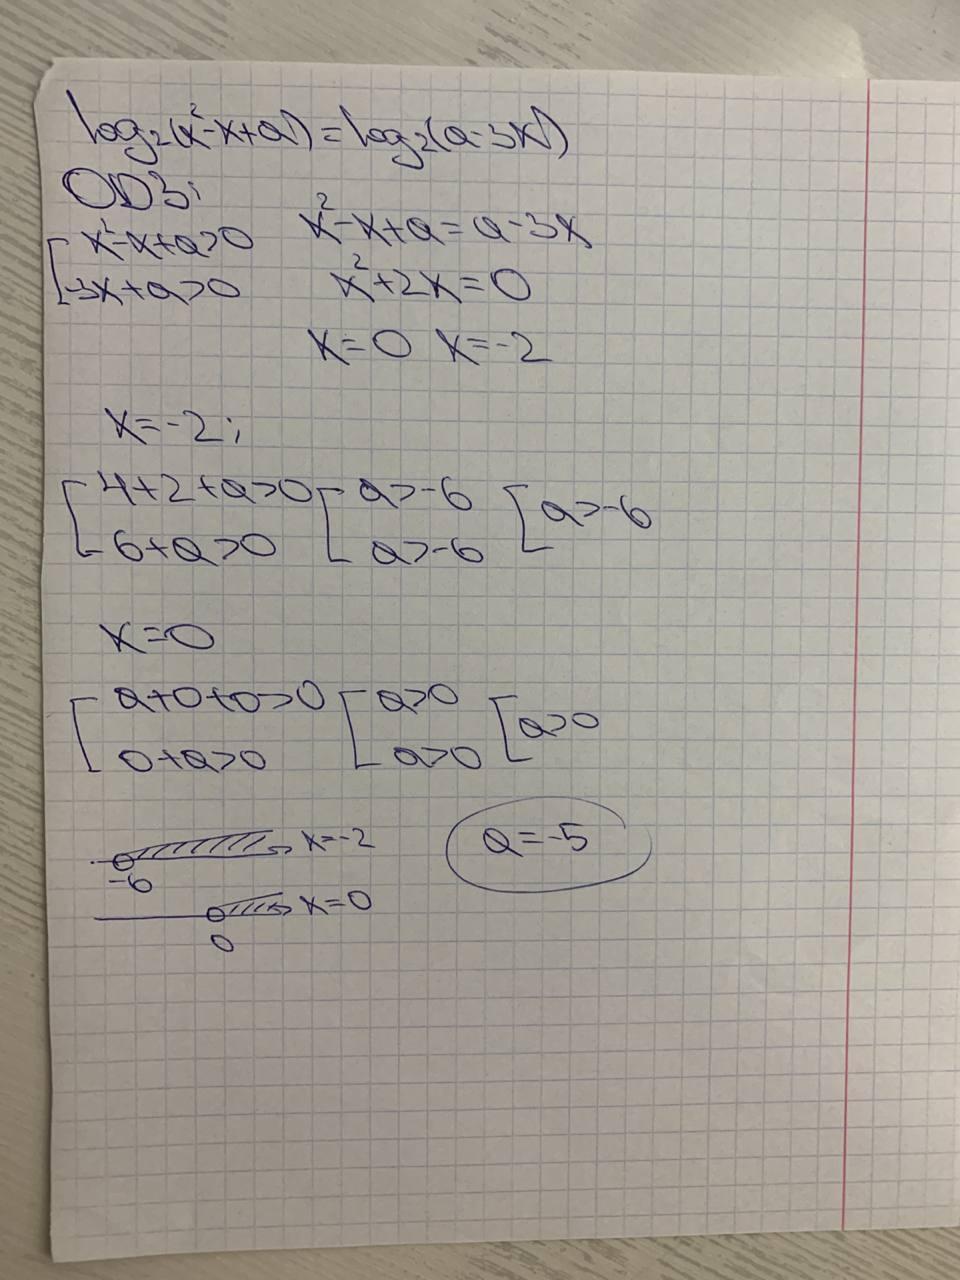 log₂(x²-x+a) = log₂(a-3x)
ОДЗ:
x²-x+a>0
-3x+a>0
x²-x+a=a-3x
x²+2x=0
x=0 x=-2
x=-2;
4+2+a>0 a>-6 a>-6
6+a>0 a>-6
x=0
a+0+0>0 a>0 a>0
0+a>0 a>0
x=-2
-6
x=0
0
a=-5